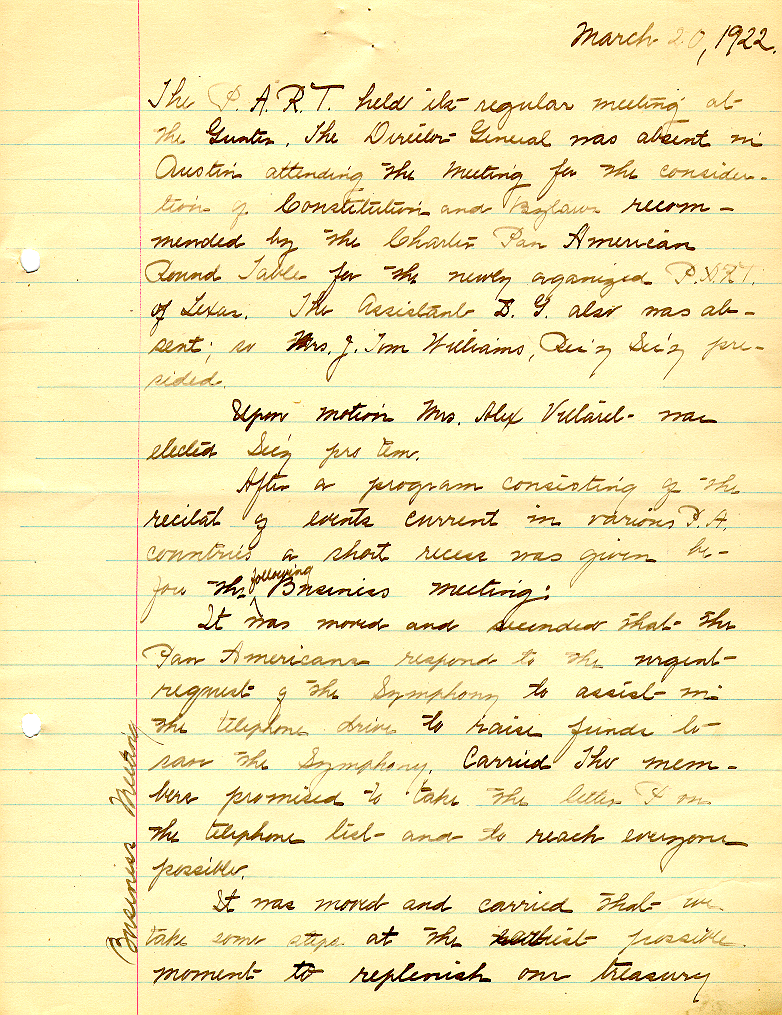 March 20, 1922.
The P. A. R. T. held its regular meeting at
the Gunter. The Director General was absent in
Austin attending the Meeting for the considera-
tion of Constitution and Bylaws recom-
mended by the Charter Pan American
Round Table for the newly organized P.A.R.T.
of Texas. The Assistant D. G. also was ab-
sent; so Mrs. J. Tom Williams, Rec'y Sec'y pre-
sided.
Upon motion Mrs. Alex Villarel was
elected Sec'y pro tem.
After a program consisting of the
recital of events current in various P.A.
countries a short recess was given be-
fore the following Business meeting:
It was moved and seconded that the
Pan Americans respond to the urgent
request of the Symphony to assist in
the telephone drive to raise funds to
save the Symphony. Carried The mem-
bers promised to take the letter H on
the telephone list and to reach everyone
possible.
It was moved and carried that we
take some steps at the earliest possible
moment to replenish our treasury
Business Meeting